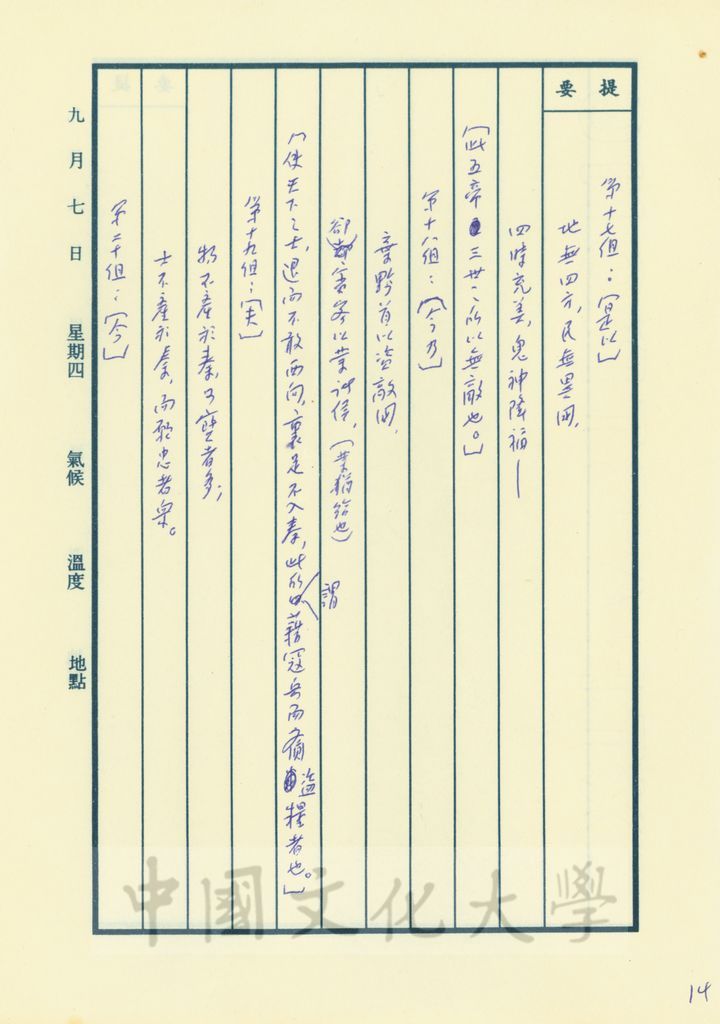 提要
第十七組：「是以」
地無四方，民無異國，
四時充美，鬼神降福—
「此五帝三世之所以無敵也。」
第十八組：「今乃」
棄黔首以資敵國，
卻賓客以業諸侯，(業猶給也)
「使天下之士，退而不敢西向，裹足不入秦，此所謂藉寇兵而齎盜糧者也。」
第十九組：「夫」
物不產於秦，可寶者多；
士不產於秦，而願忠者眾。
第二十組：「今」
九月七日 星期四 氣候 溫度 地點
中國文化大學
14